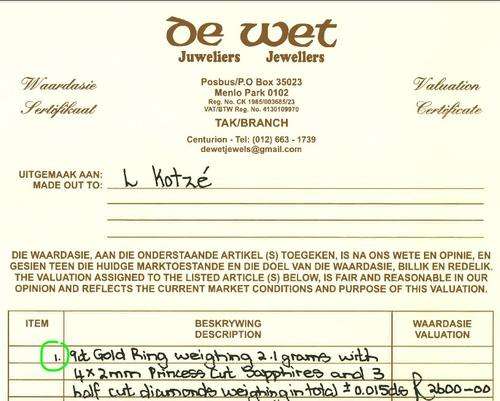 de wet
Juweliers Jewellers
Waardasie
Sertifikaat
Posbus/P.O Box 35023
Menlo Park 0102
Reg. No. CK 1985/003685/23
VAT/BTW Reg. No. 4130109970
TAK/BRANCH
Centurion - Tel: (012) 663 - 1739
dewetjewels@gmail.com
Valuation
Certificate
UITGEMAAK AAN:
MADE OUT TO: L Kotzé
DIE WAARDASIE, AAN DIE ONDERSTAANDE ARTIKEL (S) TOEGEKEN, IS NA ONS WETE EN OPINIE, EN
GESIEN TEEN DIE HUIDGE MARKTOESTANDE EN DIE DOEL VAN DIE WAARDASIE, BILLIK EN REDELIK.
THE VALUATION ASSIGNED TO THE LISTED ARTICLE (S) BELOW, IS FAIR AND REASONABLE IN OUR
OPINION AND REFLECTS THE CURRENT MARKET CONDITIONS AND PURPOSE OF THIS VALUATION.
ITEM BESKRYWING WAARDASIE
DESCRIPTION VALUATION
1. 9ct Gold Ring weighing 2.1 grams with
4x2mm Princess Cut Sapphires and 3
half cut diamonds weighing in total ± 0.015cts R 2600-00